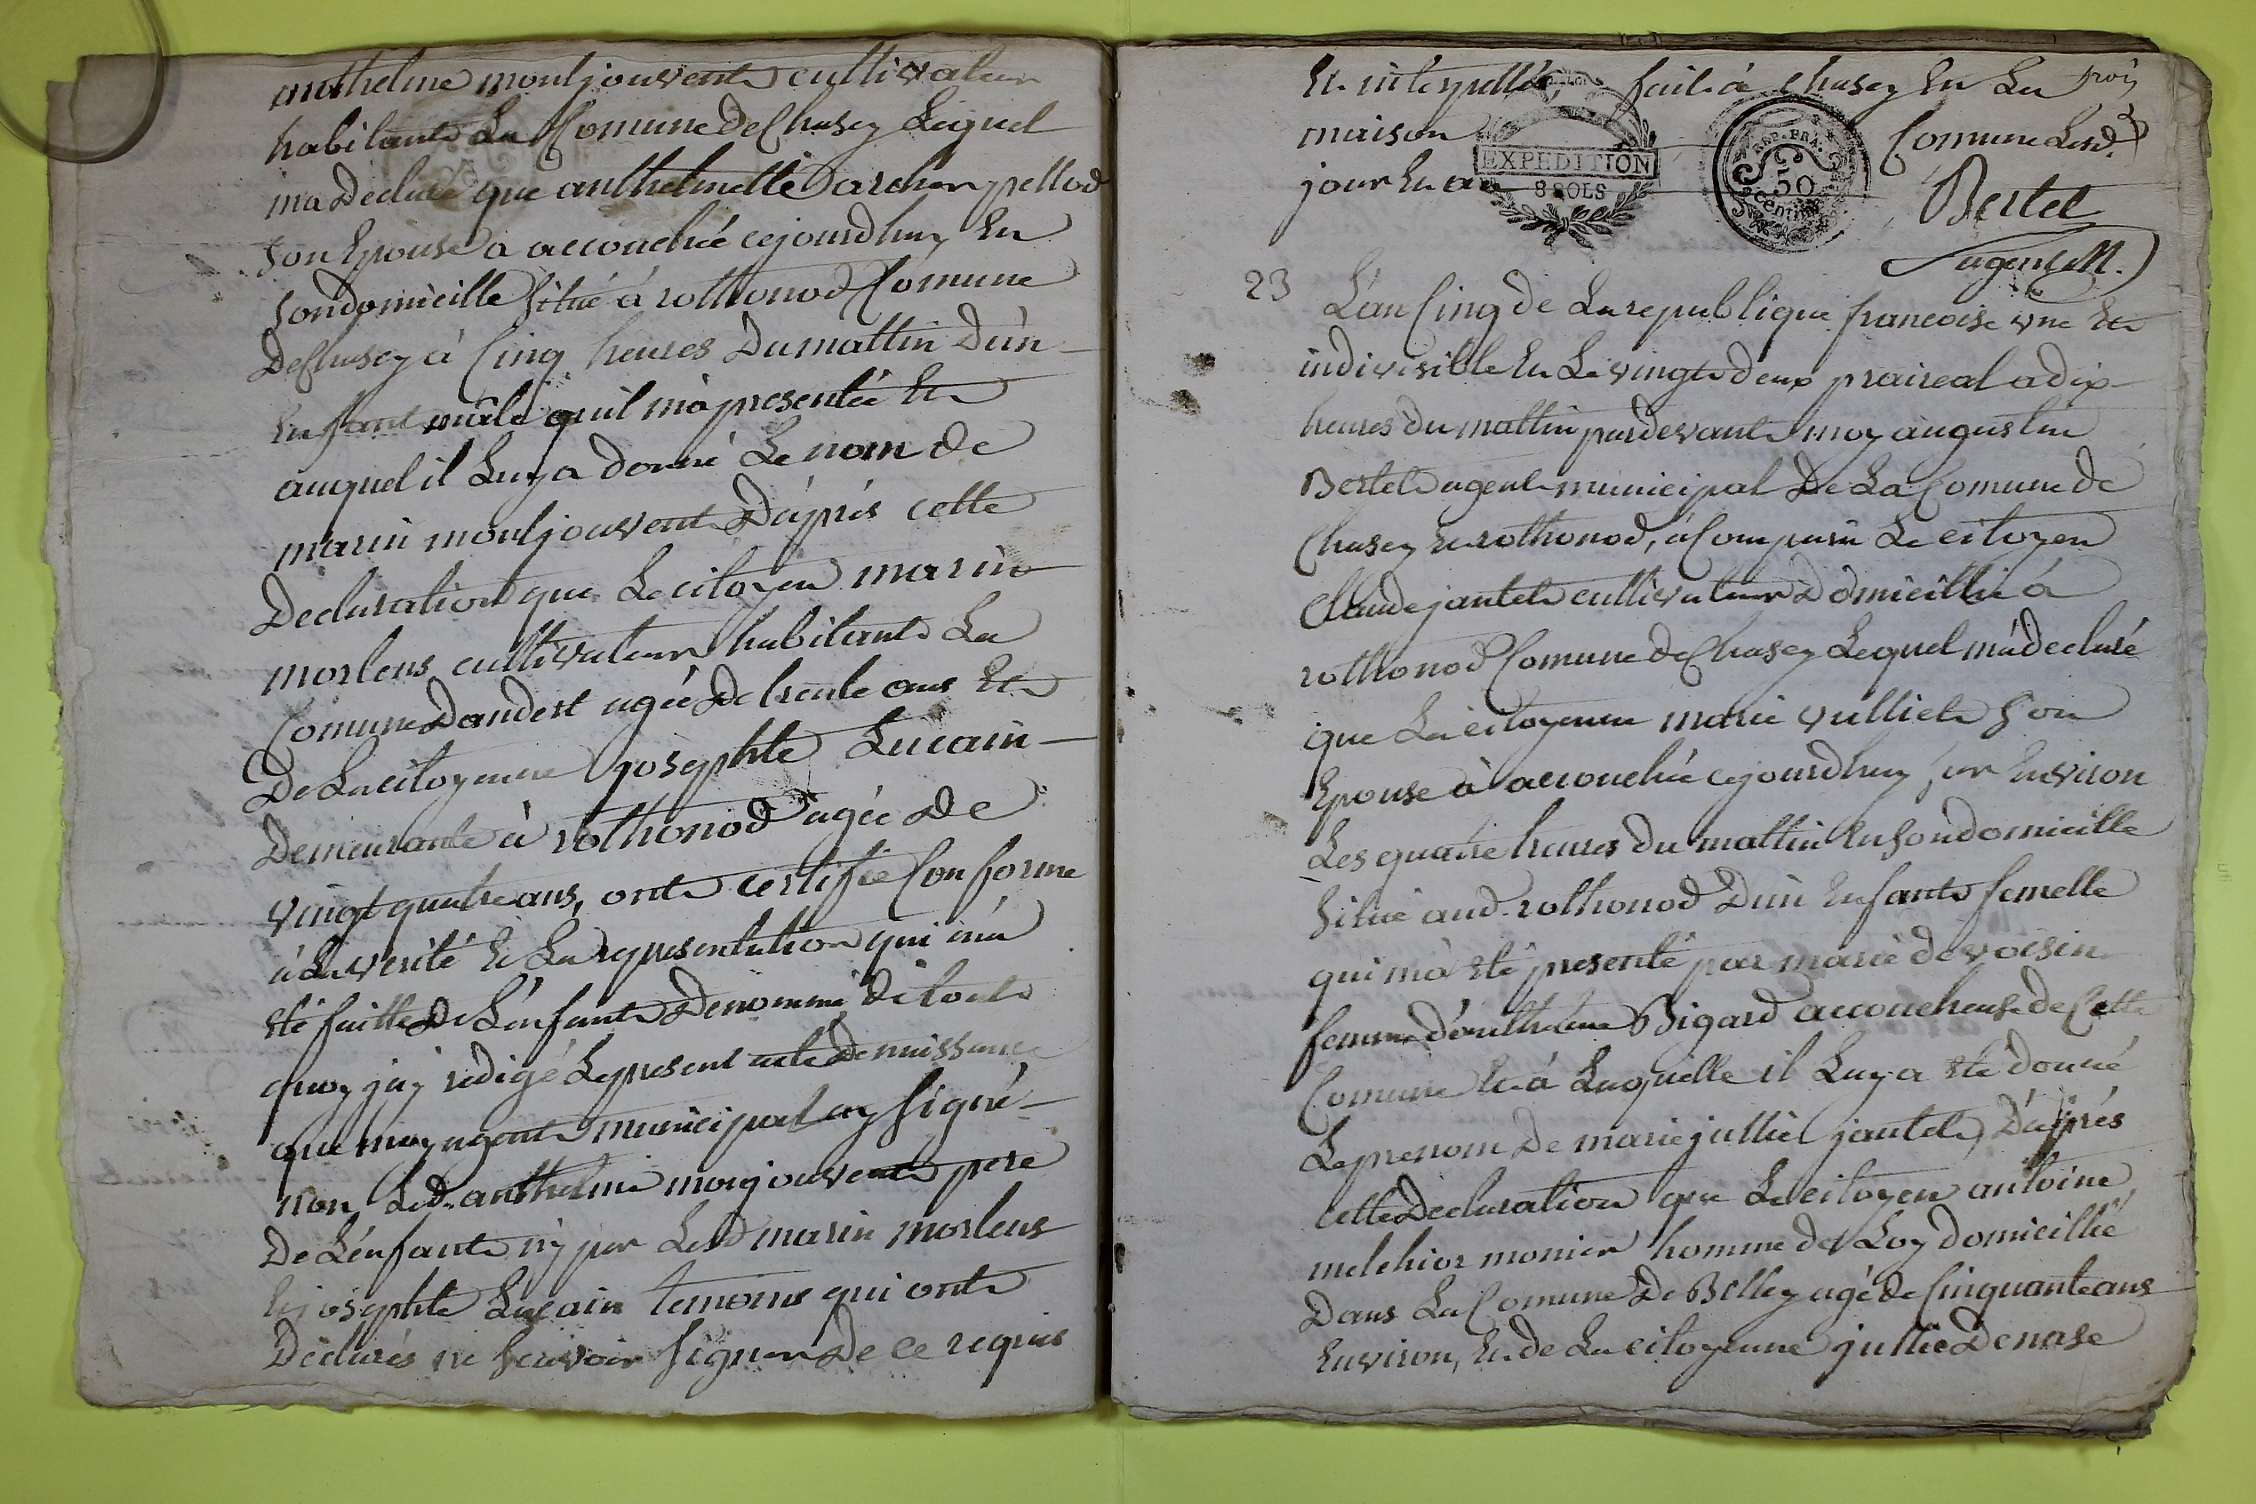 anthelme montjouvent cultivateur
habitant La Comune de Chasey Lequel
ma Declaré que anthelmette archer pellod
son Epouse a accouchée cejourdhuy En
son domicille situé à rothonod Comune
De Chasey à Cinq heures Du mattin Dun
Enfant mâle quil mà presentée Et
auquel il Luy a donné Le nom de
marin montjouvent Dàprés cette
Declaration que Le citoyen marin
morlens cultivateur habitant La
Comune Dandert agée De trente ans Et
De La citoyenne josephte Lucain
Demeurante à rothonod agée De
vingt quatre ans, ont certifié Conforme
à La verité Et La representation qui mà
eté faitte De Lénfant Denommé de tout
quoy jay redigé Le present acte De naissance
que moy agent municipal ay signé
non Led. anthelme monjouvent pere
De Lénfant ny par Led marin morlens
Et josephte Lucain temoins qui ont
Déclarés ne scavoir signer De ce requis
Et intepellés, fait à Chasey En La
maison Comune Lesd.
jour En an
EXPEDITION
8 SOLS
REP. FRA.
50
centim
Bertet
agent M.
23
Lan Cinq de La republique francoise une Et
indivisible En Le vingt deux praireal a dix
heures du mattin pardevant moy augustin
Bertet agent municipal De La Comune de
Chasey Et rothonod, à Comparu Le citoyen
Claude jantet cultivateur Domicillié à
rothonod Comune de Chasey Lequel mà declaré
que La citoyenne marie vulliet son
Epouse à accouchée cejourdhuy sur Environ
Les quatre heures du mattin En son domicille
situé aud. rothonod Dun Enfant femelle
qui mà eté presenté par marie devoisin
femme dànthelme Bigard accoucheuse de Cette
Comune Et à Laquelle il Luy a eté donné
Le prenom De marie jullie jantet, Dàprés
cette Declaration que Le citoyen antoine
melchior monier homme de Loy domicillié
Dans La Comune De Belley agé de Cinquante ans
Environ, Et de La citoyenne jullie Denase